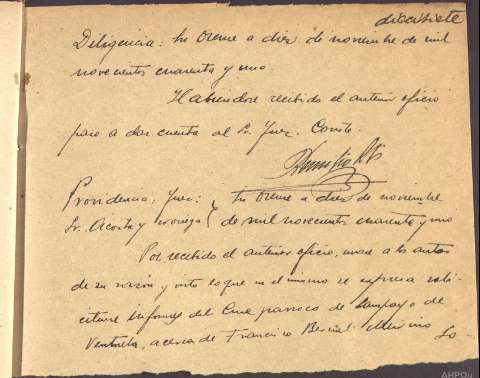 diecisiete
Diligencia: En Orense a diez de noviembre de mil
novecientos cuarenta y uno.
Habiendose recibido el anterior oficio
paso a dar cuenta al Sr. Juez. Consta.
Providencia, Juez: En Orense a diez de noviembre
Sr. Acosta y de mil novecientos cuarenta y uno
Por recibido el anterior oficio, unase a los autos
de su razón y visto lo que en el mismo se expresa
informe del Cura parroco de Sampayo de
Ventosela, acerca de Francisco Bernal Merino
Lo
AHPOu